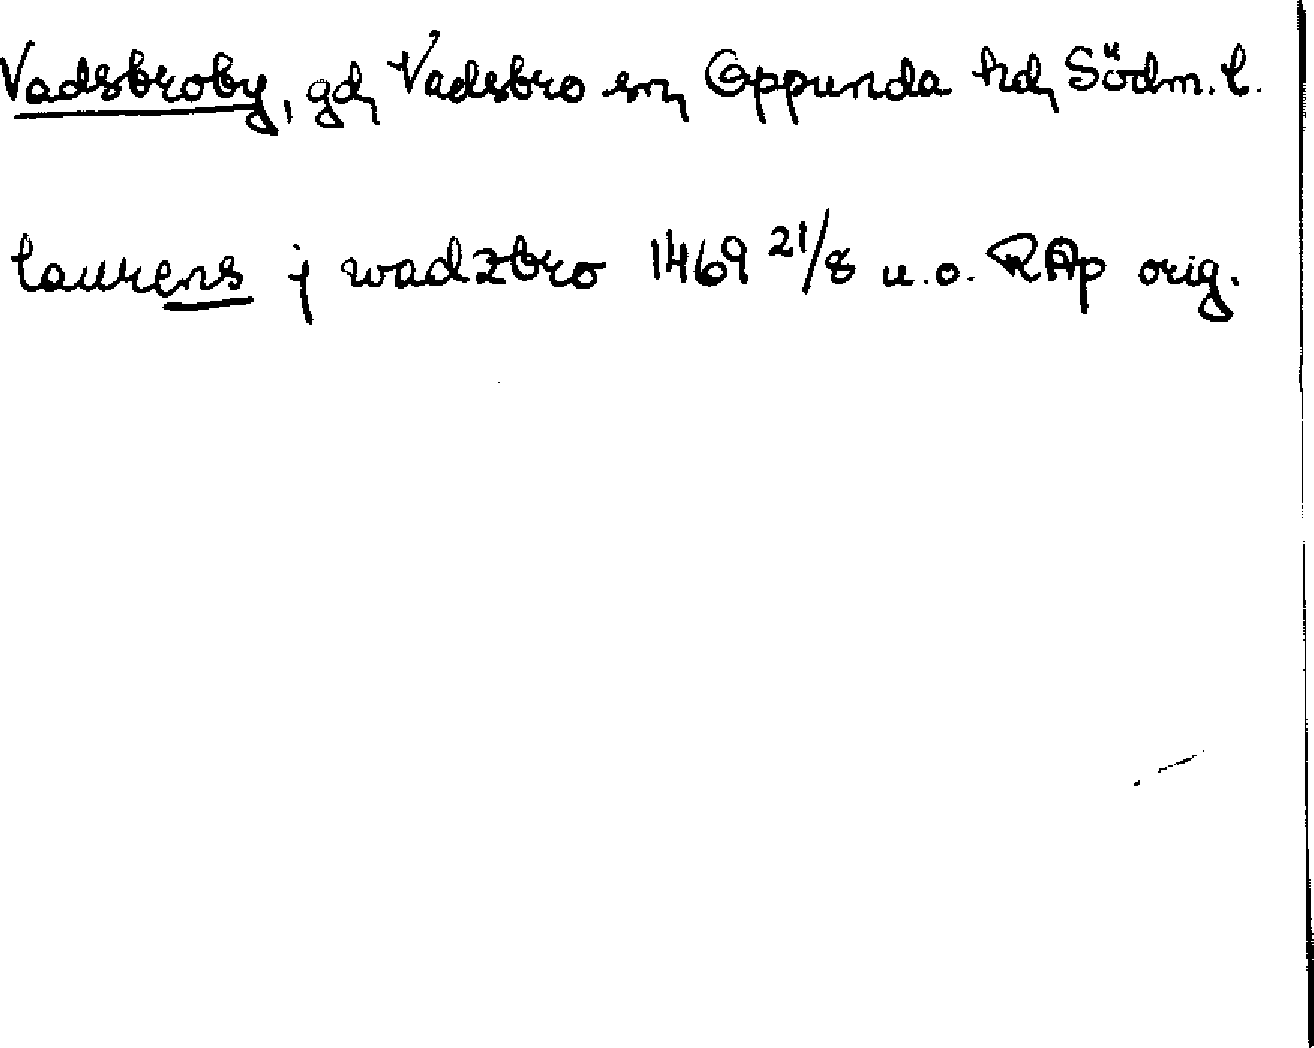 Vadsbroby, gd, Vadsbro sn, Oppunda hd, Södm. l.
laurens j wadzbro 1469 21/8 u.o. RAp orig.